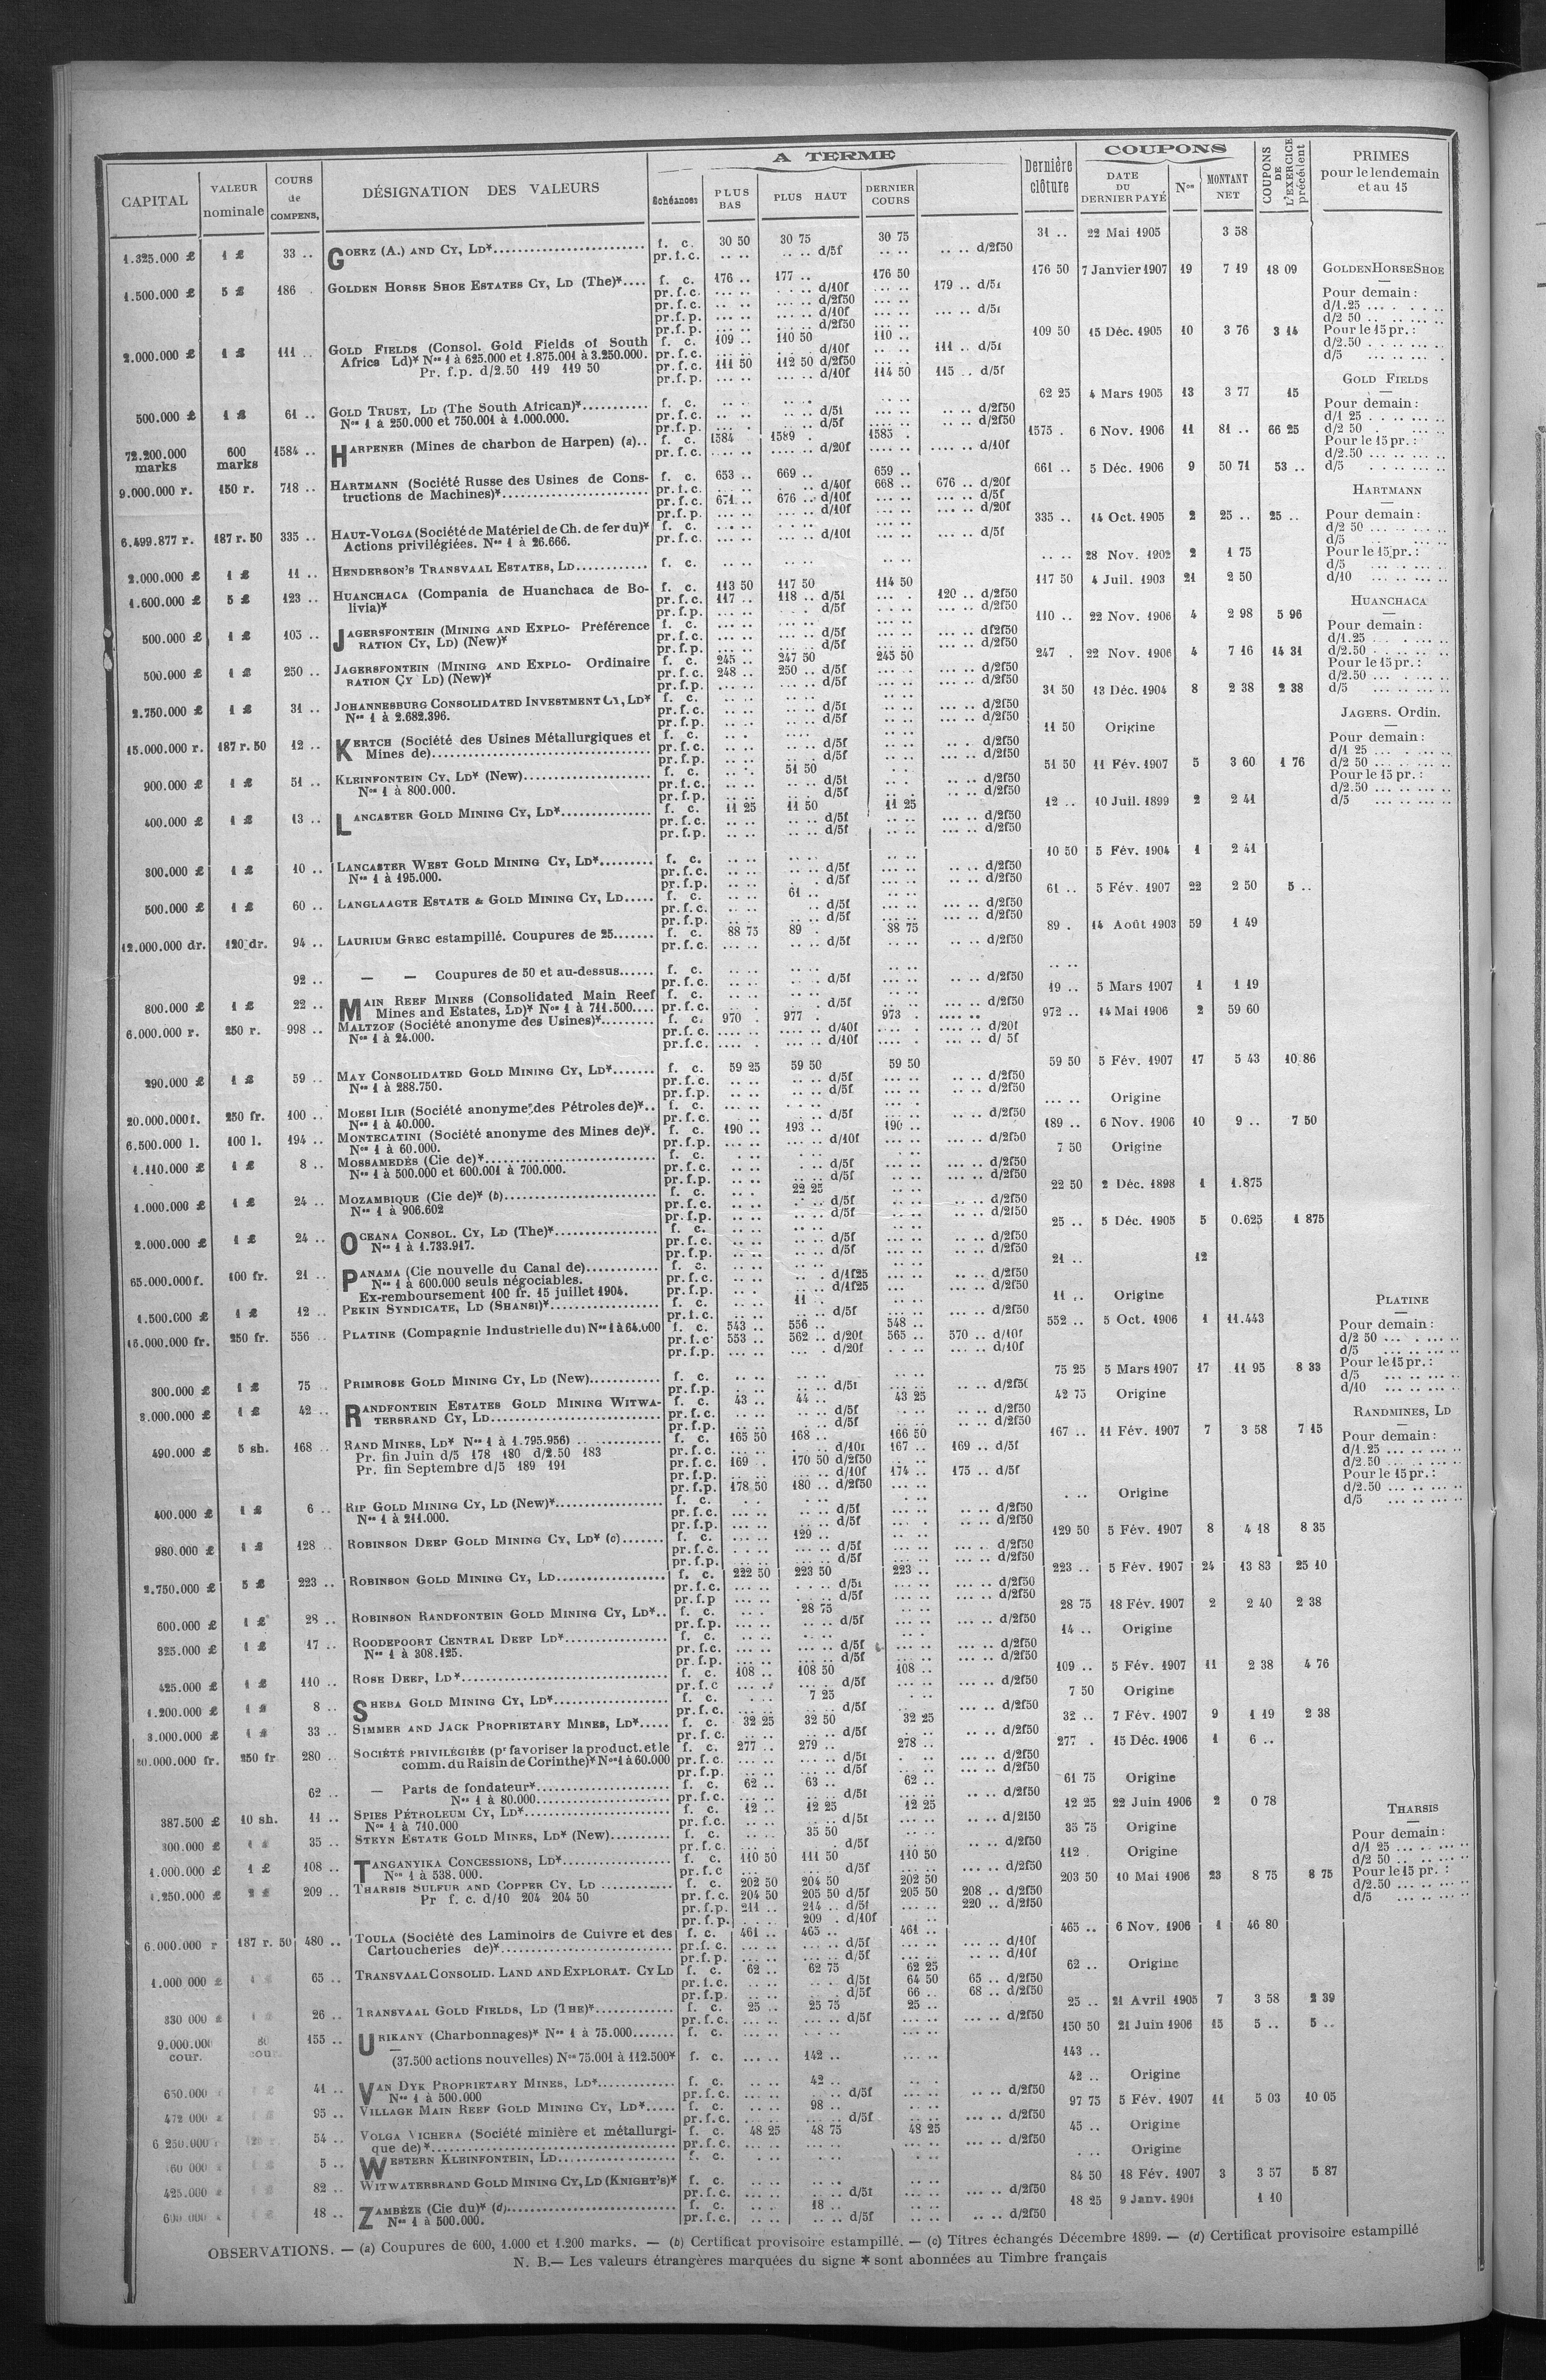 CAPITAL | VALEUR nominale | COURS de COMPENS. | DÉSIGNATION DES VALEURS | A TERME | Échéances | PLUS BAS | PLUS HAUT | DERNIER COURS | Dernière clôture | COUPONS | DATE DU DERNIER PAYÉ | Nos | MONTANT NET | COUPONS DE L'EXERCICE précédent | PRIMES pour le lendemain et au 15
1.325.000 £ 1 £ 33 .. GOERZ (A.) AND CY, LD* f. c. 30 50 30 75 30 75 31 .. 22 Mai 1905 3 58
pr.f.c. .. .. .. .. d/5f .. .. .. .. d/2f50
1.500.000 £ 5 £ 186 . GOLDEN HORSE SHOE ESTATES CY, LD (The)* f. c. 176 .. 177 .. 176 50 176 50 7 Janvier 1907 19 7 19 18 09
pr.f.c. d/10f 179 .. d/5f
pr.f.c. d/2f50
pr.f.p. d/10f d/5f
pr.f.p. d/2f50
2.000.000 £ 1 £ 111 .. GOLD FIELDS (Consol. Gold Fields of South f. c. 109 .. 110 50 110 .. 109 50 15 Déc. 1905 10 3 76 3 14
Africa Ld)* Nos 1 à 625.000 et 1.875.001 à 3.250.000. pr.f.c. d/10f 111 .. d/5f
Pr. f.p. d/2.50 119 119 50 pr.f.c. 111 50 112 50 d/2f50
pr.f.p. d/10f 114 50 115 .. d/5f
500.000 £ 1 £ 61 .. GOLD TRUST, LD (The South African)* f. c. 62 25 4 Mars 1905 13 3 77 15
Nos 1 à 250.000 et 750.001 à 1.000.000. pr.f.c. d/5f d/2f50
pr.f.p. d/5f d/2f50
72.200.000 marks 600 marks 1584 .. HARPENER (Mines de charbon de Harpen) (a).. f. c. 1584 . 1589 . 1585 . 1575 . 6 Nov. 1906 11 81 .. 66 25
pr.f.c. d/20f d/10f
9.000.000 r. 150 r. 718 .. HARTMANN (Société Russe des Usines de Cons- f. c. 653 .. 669 .. 659 .. 661 .. 5 Déc. 1906 9 50 71 53 ..
tructions de Machines)* pr.f.c. d/40f 668 .. 676 .. d/20f
pr.f.c. 671 .. 676 .. d/10f d/5f
pr.f.p. d/10f d/20f
6.499.877 r. 187 r. 50 335 .. HAUT-VOLGA (Société de Matériel de Ch. de fer du)* f. c. 335 .. 14 Oct. 1905 2 25 .. 25 ..
Actions privilégiées. Nos 1 à 26.666. pr.f.c. d/10f d/5f
2.000.000 £ 1 £ 11 .. HENDERSON'S TRANSVAAL ESTATES, LD f. c. 28 Nov. 1902 2 1 75
1.600.000 £ 5 £ 123 .. HUANCHACA (Compania de Huanchaca de Bo- f. c. 113 50 117 50 114 50 117 50 4 Juil. 1903 21 2 50
livia)* pr.f.c. 117 .. 118 .. d/5f 120 .. d/2f50
pr.f.p. d/5f d/2f50
500.000 £ 1 £ 105 .. JAGERSFONTEIN (MINING AND EXPLO- Préférence f. c. 110 .. 22 Nov. 1906 4 2 98 5 96
RATION CY, LD) (New)* pr.f.c. d/5f df2f50
pr.f.p. d/5f d/2f50
500.000 £ 1 £ 250 .. JAGERSFONTEIN (MINING AND EXPLO- Ordinaire f. c. 245 .. 247 50 245 50 247 . 22 Nov. 1906 4 7 16 14 31
RATION CY LD) (New)* pr.f.c. 248 .. 250 .. d/5f d/2f50
pr.f.p. d/5f d/2f50
2.750.000 £ 1 £ 31 .. JOHANNESBURG CONSOLIDATED INVESTMENT CY, LD* f. c. 31 50 13 Déc. 1904 8 2 38 2 38
Nos 1 à 2.682.396. pr.f.c. d/5f d/2f50
pr.f.p. d/5f d/2f50
15.000.000 r. 187 r. 50 12 .. KERTCH (Société des Usines Métallurgiques et f. c. 11 50 Origine
Mines de) pr.f.c. d/5f d/2f50
pr.f.p. d/5f d/2f50
900.000 £ 1 £ 51 .. KLEINFONTEIN CY, LD* (New) f. c. 51 50 51 50 11 Fév. 1907 5 3 60 1 76
Nos 1 à 800.000. pr.f.c. d/5f d/2f50
pr.f.p. d/5f d/2f50
400.000 £ 1 £ 13 .. LANCASTER GOLD MINING CY, LD* f. c. 11 25 11 50 11 25 12 .. 10 Juil. 1899 2 2 41
pr.f.c. d/5f d/2f50
pr.f.p. d/5f d/2f50
300.000 £ 1 £ 10 .. LANCASTER WEST GOLD MINING CY, LD* f. c. 10 50 5 Fév. 1904 1 2 41
Nos 1 à 195.000. pr.f.c. d/5f d/2f50
pr.f.p. d/5f d/2f50
500.000 £ 1 £ 60 .. LANGLAAGTE ESTATE & GOLD MINING CY, LD f. c. 61 .. 61 .. 5 Fév. 1907 22 2 50 5 ..
pr.f.c. d/5f d/2f50
pr.f.p. d/5f d/2f50
12.000.000 dr. 120 dr. 94 .. LAURIUM GREC estampillé. Coupures de 25 f. c. 88 75 89 . 88 75 89 . 14 Août 1903 59 1 49
pr.f.c. d/5f d/2f50
92 .. — — Coupures de 50 et au-dessus f. c.
pr.f.c. d/5f d/2f50
800.000 £ 1 £ 22 .. MAIN REEF MINES (Consolidated Main Reef f. c. 19 .. 5 Mars 1907 1 1 19
Mines and Estates, LD)* Nos 1 à 711.500 pr.f.c. d/5f d/2f50
6.000.000 r. 250 r. 998 .. MALTZOF (Société anonyme des Usines)* f. c. 970 . 977 . 973 . 972 .. 14 Mai 1906 2 59 60
Nos 1 à 24.000. pr.f.c. d/40f d/20f
pr.f.c. d/10f d/ 5f
290.000 £ 1 £ 59 .. MAY CONSOLIDATED GOLD MINING CY, LD* f. c. 59 25 59 50 59 50 59 50 5 Fév. 1907 17 5 43 10.86
Nos 1 à 288.750. pr.f.c. d/5f d/2f50
pr.f.p. d/5f d/2f50
20.000.000 f. 250 fr. 100 .. MOESI ILIR (Société anonyme des Pétroles de)* f. c. Origine
Nos 1 à 40.000. pr.f.c. d/5f d/2f50
6.500.000 l. 100 l. 194 .. MONTECATINI (Société anonyme des Mines de)*. f. c. 190 .. 193 .. 190 .. 189 .. 6 Nov. 1906 10 9 .. 7 50
Nos 1 à 60.000. pr.f.p. d/10f d/2f50
1.110.000 £ 1 £ 8 .. MOSSAMEDÈS (Cie de)* f. c. 7 50 Origine
Nos 1 à 500.000 et 600.001 à 700.000. pr.f.c. d/5f d/2f50
pr.f.p. d/5f d/2f50
1.000.000 £ 1 £ 24 .. MOZAMBIQUE (Cie de)* (b) f. c. 22 25 22 50 2 Déc. 1898 1 1.875
Nos 1 à 906.602 pr.f.c. d/5f d/2f50
pr.f.p. d/5f d/2f50
2.000.000 £ 1 £ 24 .. OCEANA CONSOL. CY, LD (The)* f. c. 25 .. 5 Déc. 1905 5 0.625 1 875
Nos 1 à 1.733.917. pr.f.c. d/5f d/2f50
pr.f.p. d/5f d/2f50
65.000.000 f. 100 fr. 21 .. PANAMA (Cie nouvelle du Canal de) f. c. 21 .. 12
Nos 1 à 600.000 seuls négociables. pr.f.c. d/1f25 d/2f50
Ex-remboursement 100 fr. 15 juillet 1904. pr.f.p. d/1f25 d/2f50
1.500.000 £ 1 £ 12 .. PEKIN SYNDICATE, LD (SHANSI)* f. c. 11 . 11 .. Origine
pr.f.c. d/5f d/2f50
16.000.000 fr. 250 fr. 556 .. PLATINE (Compagnie Industrielle du) Nos 1 à 64.000 f. c. 543 .. 556 .. 548 .. 552 .. 5 Oct. 1906 1 11.443
pr.f.c. 553 .. 562 .. d/20f 565 .. 570 .. d/10f
pr.f.p. d/20f d/10f
300.000 £ 1 £ 75 PRIMROSE GOLD MINING CY, LD (New) f. c. 75 25 5 Mars 1907 17 11 95 8 33
pr.f.p. d/5f d/2f50
3.000.000 £ 1 £ 42 .. RANDFONTEIN ESTATES GOLD MINING WITWA- f. c. 43 .. 44 .. 43 25 42 75 Origine
TERSRAND CY, LD pr.f.c. d/5f d/2f50
pr.f.p. d/5f d/2f50
490.000 £ 5 sh. 168 .. RAND MINES, LD* Nos 1 à 1.795.956) f. c. 165 50 168 .. 166 50 167 .. 11 Fév. 1907 7 3 58 7 15
Pr. fin Juin d/5 178 180 d/2.50 183 pr.f.c. d/10f 167 .. 169 .. d/5f
Pr. fin Septembre d/5 189 191 pr.f.c. 169 . 170 50 d/2f50
pr.f.p. d/10f 174 .. 175 .. d/5f
pr.f.p. 178 50 180 .. d/2f50
400.000 £ 1 £ 6 .. RIP GOLD MINING CY, LD (New)* f. c. Origine
Nos 1 à 211.000. pr.f.c. d/5f d/2f50
pr.f.p. d/5f d/2f50
980.000 £ 1 £ 128 .. ROBINSON DEEP GOLD MINING CY, LD* (c) f. c. 129 .. 129 50 5 Fév. 1907 8 4 18 8 35
pr.f.c. d/5f d/2f50
pr.f.p. d/5f d/2f50
2.750.000 £ 5 £ 223 .. ROBINSON GOLD MINING CY, LD f. c. 222 50 223 50 223 .. 223 .. 5 Fév. 1907 24 13 83 25 10
pr.f.c. d/5f d/2f50
pr.f.p d/5f d/2f50
600.000 £ 1 £ 28 .. ROBINSON RANDFONTEIN GOLD MINING CY, LD* f. c. 28 75 28 75 18 Fév. 1907 2 2 40 2 38
pr.f.p. d/5f d/2f50
325.000 £ 1 £ 17 .. ROODEPOORT CENTRAL DEEP LD* f. c. 14 .. Origine
Nos 1 à 308.125. pr.f.c. d/5f d/2f50
pr.f.p. d/5f d/2f50
425.000 £ 1 £ 110 .. ROSE DEEP, LD* f. c. 108 .. 108 50 108 .. 109 .. 5 Fév. 1907 11 2 38 4 76
pr.f.c d/5f d/2f50
1.200.000 £ 1 £ 8 .. SHEBA GOLD MINING CY, LD* f. c. 7 25 7 50 Origine
pr.f.c. d/5f d/2f50
3.000.000 £ 1 £ 33 .. SIMMER AND JACK PROPRIETARY MINES, LD* f. c. 32 25 32 50 32 25 32 .. 7 Fév. 1907 9 1 19 2 38
pr.f.c. d/5f d/2f50
20.000.000 fr. 250 fr 280 .. SOCIÉTÉ PRIVILÉGIÉE (pr favoriser la product. et le f. c. 277 .. 279 .. 278 .. 277 . 15 Déc. 1906 1 6 ..
comm. du Raisin de Corinthe)* Nos 1 à 60.000 pr.f.c. d/5f d/2f50
pr.f.p. d/5f d/2f50
62 .. — Parts de fondateur* f. c. 62 .. 63 .. 62 .. 61 75 Origine
Nos 1 à 80.000 pr.f.c. d/5f d/2f50
387.500 £ 10 sh. 11 .. SPIES PÉTROLEUM CY, LD* f. c. 12 .. 12 25 12 25 12 25 22 Juin 1906 2 0 78
Nos 1 à 710.000 pr.f.c. d/5f d/2f50
300.000 £ 1 £ 35 .. STEYN ESTATE GOLD MINES, LD* (New) f. c. 35 50 35 75 Origine
pr.f.c. d/5f d/2f50
1.000.000 £ 1 £ 108 .. TANGANYIKA CONCESSIONS, LD* f. c. 110 50 111 50 110 50 112 . Origine
Nos 1 à 538.000. pr.f.c d/5f d/2f50
1.250.000 £ 2 £ 209 .. THARSIS SULFUR AND COPPER CY, LD f. c. 202 50 204 50 202 50 203 50 10 Mai 1906 23 8 75 8 75
Pr f. c. d/10 204 204 50 pr.f.c. 204 50 205 50 d/5f 205 50 208 .. d/2f50
pr.f.p. 211 .. 214 .. d/5f 220 .. d/2f50
pr.f.p. 209 . d/10f
6.000.000 r 187 r. 50 480 .. TOULA (Société des Laminoirs de Cuivre et des f. c. 461 .. 465 .. 461 .. 465 .. 6 Nov. 1906 1 46 80
Cartoucheries de)* pr.f.c. d/5f d/10f
pr.f.p. d/5f d/10f
1.000 000 £ 1 £ 65 .. TRANSVAAL CONSOLID. LAND AND EXPLORAT. CY LD f. c. 62 .. 62 75 62 25 62 .. Origine
pr.f.c. d/5f 64 50 65 .. d/2f50
pr.f.p. d/5f 66 .. 68 .. d/2f50
330 000 £ 1 £ 26 .. TRANSVAAL GOLD FIELDS, LD (THE)* f. c. 25 .. 25 75 25 .. 25 .. 21 Avril 1905 7 3 58 2 39
pr.f.c. d/5f d/2f50
9.000.000 cour. 80 cour. 155 .. URIKANY (Charbonnages)* Nos 1 à 75.000 f. c. 150 50 21 Juin 1906 15 5 .. 5 ..
— (37.500 actions nouvelles) Nos 75.001 à 112.500* f. c. 142 .. 143 ..
650.000 £ 1 £ 41 .. VAN DYK PROPRIETARY MINES, LD* f. c. 42 .. 42 .. Origine
Nos 1 à 500.000 pr.f.c. d/5f d/2f50
472 000 £ 1 £ 95 .. VILLAGE MAIN REEF GOLD MINING CY, LD* f. c. 98 .. 97 75 5 Fév. 1907 11 5 03 10 05
pr.f.c. d/5f d/2f50
6 250.000 r 54 .. VOLGA VICHERA (Société minière et métallurgi- f. c. 48 25 48 75 48 25 45 .. Origine
que de)* pr.f.c. d/2f50
5 .. WESTERN KLEINFONTEIN, LD f. c. Origine
425.000 £ 1 £ 82 .. WITWATERSRAND GOLD MINING CY, LD (KNIGHT'S)* f. c. 84 50 18 Fév. 1907 3 3 57 5 87
pr.f.c. d/5f d/2f50
18 .. ZAMBÈZE (Cie du)* (d) f. c. 18 .. 18 25 9 Janv. 1901 1 10
Nos 1 à 500.000. pr.f.c. d/5f d/2f50
GOLDEN HORSE SHOE
Pour demain :
d/1.25
d/2 50
Pour le 15 pr. :
d/2.50
d/5
GOLD FIELDS
Pour demain :
d/1 25
d/2 50
Pour le 15 pr. :
d/2.50
d/5
HARTMANN
Pour demain :
d/2 50
d/5
Pour le 15 pr. :
d/5
d/10
HUANCHACA
Pour demain :
d/1.25
d/2.50
Pour le 15 pr. :
d/2.50
d/5
JAGERS. Ordin.
Pour demain :
d/1 25
d/2 50
Pour le 15 pr. :
d/2.50
d/5
PLATINE
Pour demain :
d/2 50
d/5
Pour le 15 pr. :
d/5
d/10
RANDMINES, LD
Pour demain :
d/1.25
d/2.50
Pour le 15 pr. :
d/2.50
d/5
THARSIS
Pour demain :
d/1 25
d/2 50
Pour le 15 pr. :
d/2.50
d/5
OBSERVATIONS. — (a) Coupures de 600, 1.000 et 1.200 marks. — (b) Certificat provisoire estampillé. — (c) Titres échangés Décembre 1899. — (d) Certificat provisoire estampillé
N. B.— Les valeurs étrangères marquées du signe * sont abonnées au Timbre français